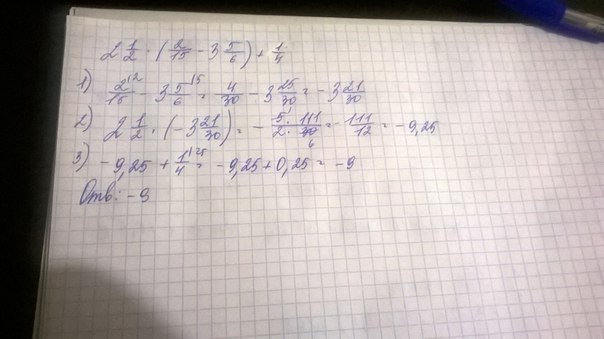 2 1/2 · (2/15 - 3 5/6) + 1/4
1) 2/15 \2 - 3 5/6 \5 = 4/30 - 3 25/30 = -3 21/30
2) 2 1/2 · (-3 21/30) = - 5 · 111 / 2 · 30 6 = - 111/12 = -9,25
3) -9,25 + 1/4 \25 = -9,25 + 0,25 = -9
Отв: -9